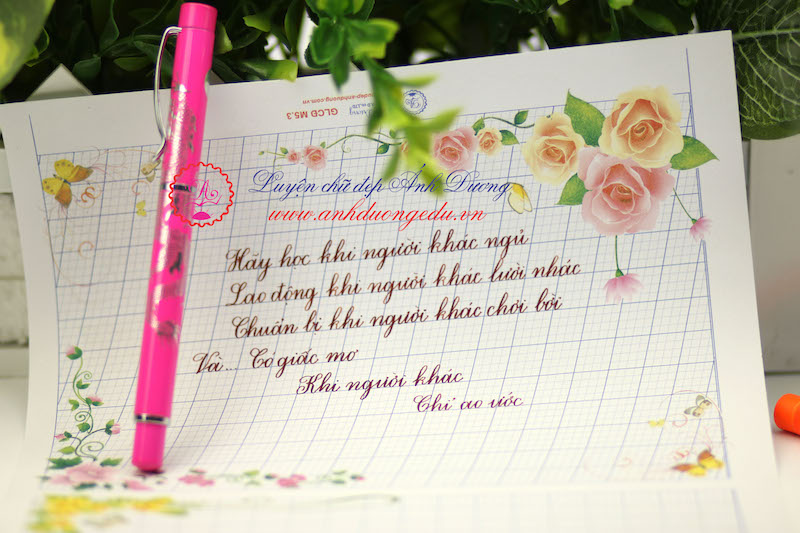 GLCĐ M5.3
Luyện chữ đẹp Ánh Dương
www.anhduongedu.vn
Hãy học khi người khác ngủ
Lao động khi người khác lười nhác
Chuẩn bị khi người khác chơi bời
Và... Có giấc mơ
Khi người khác
Chỉ ao ước